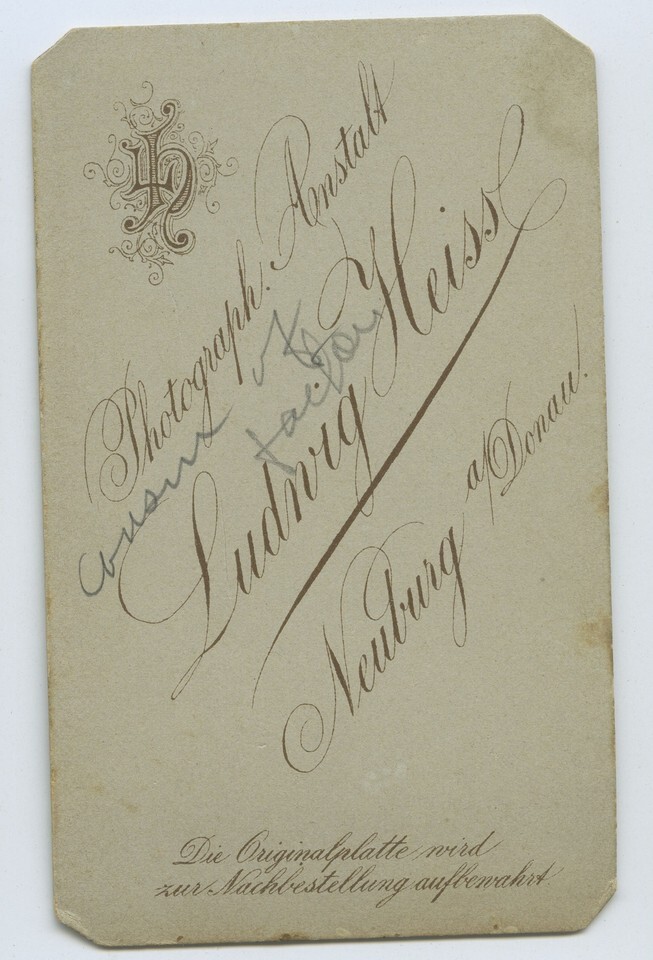 LH
Photograph. Anstalt
cousins of
Ludwig Heiss
Neuburg a/Donau.
Die Originalplatte wird
zur Nachbestellung aufbewahrt